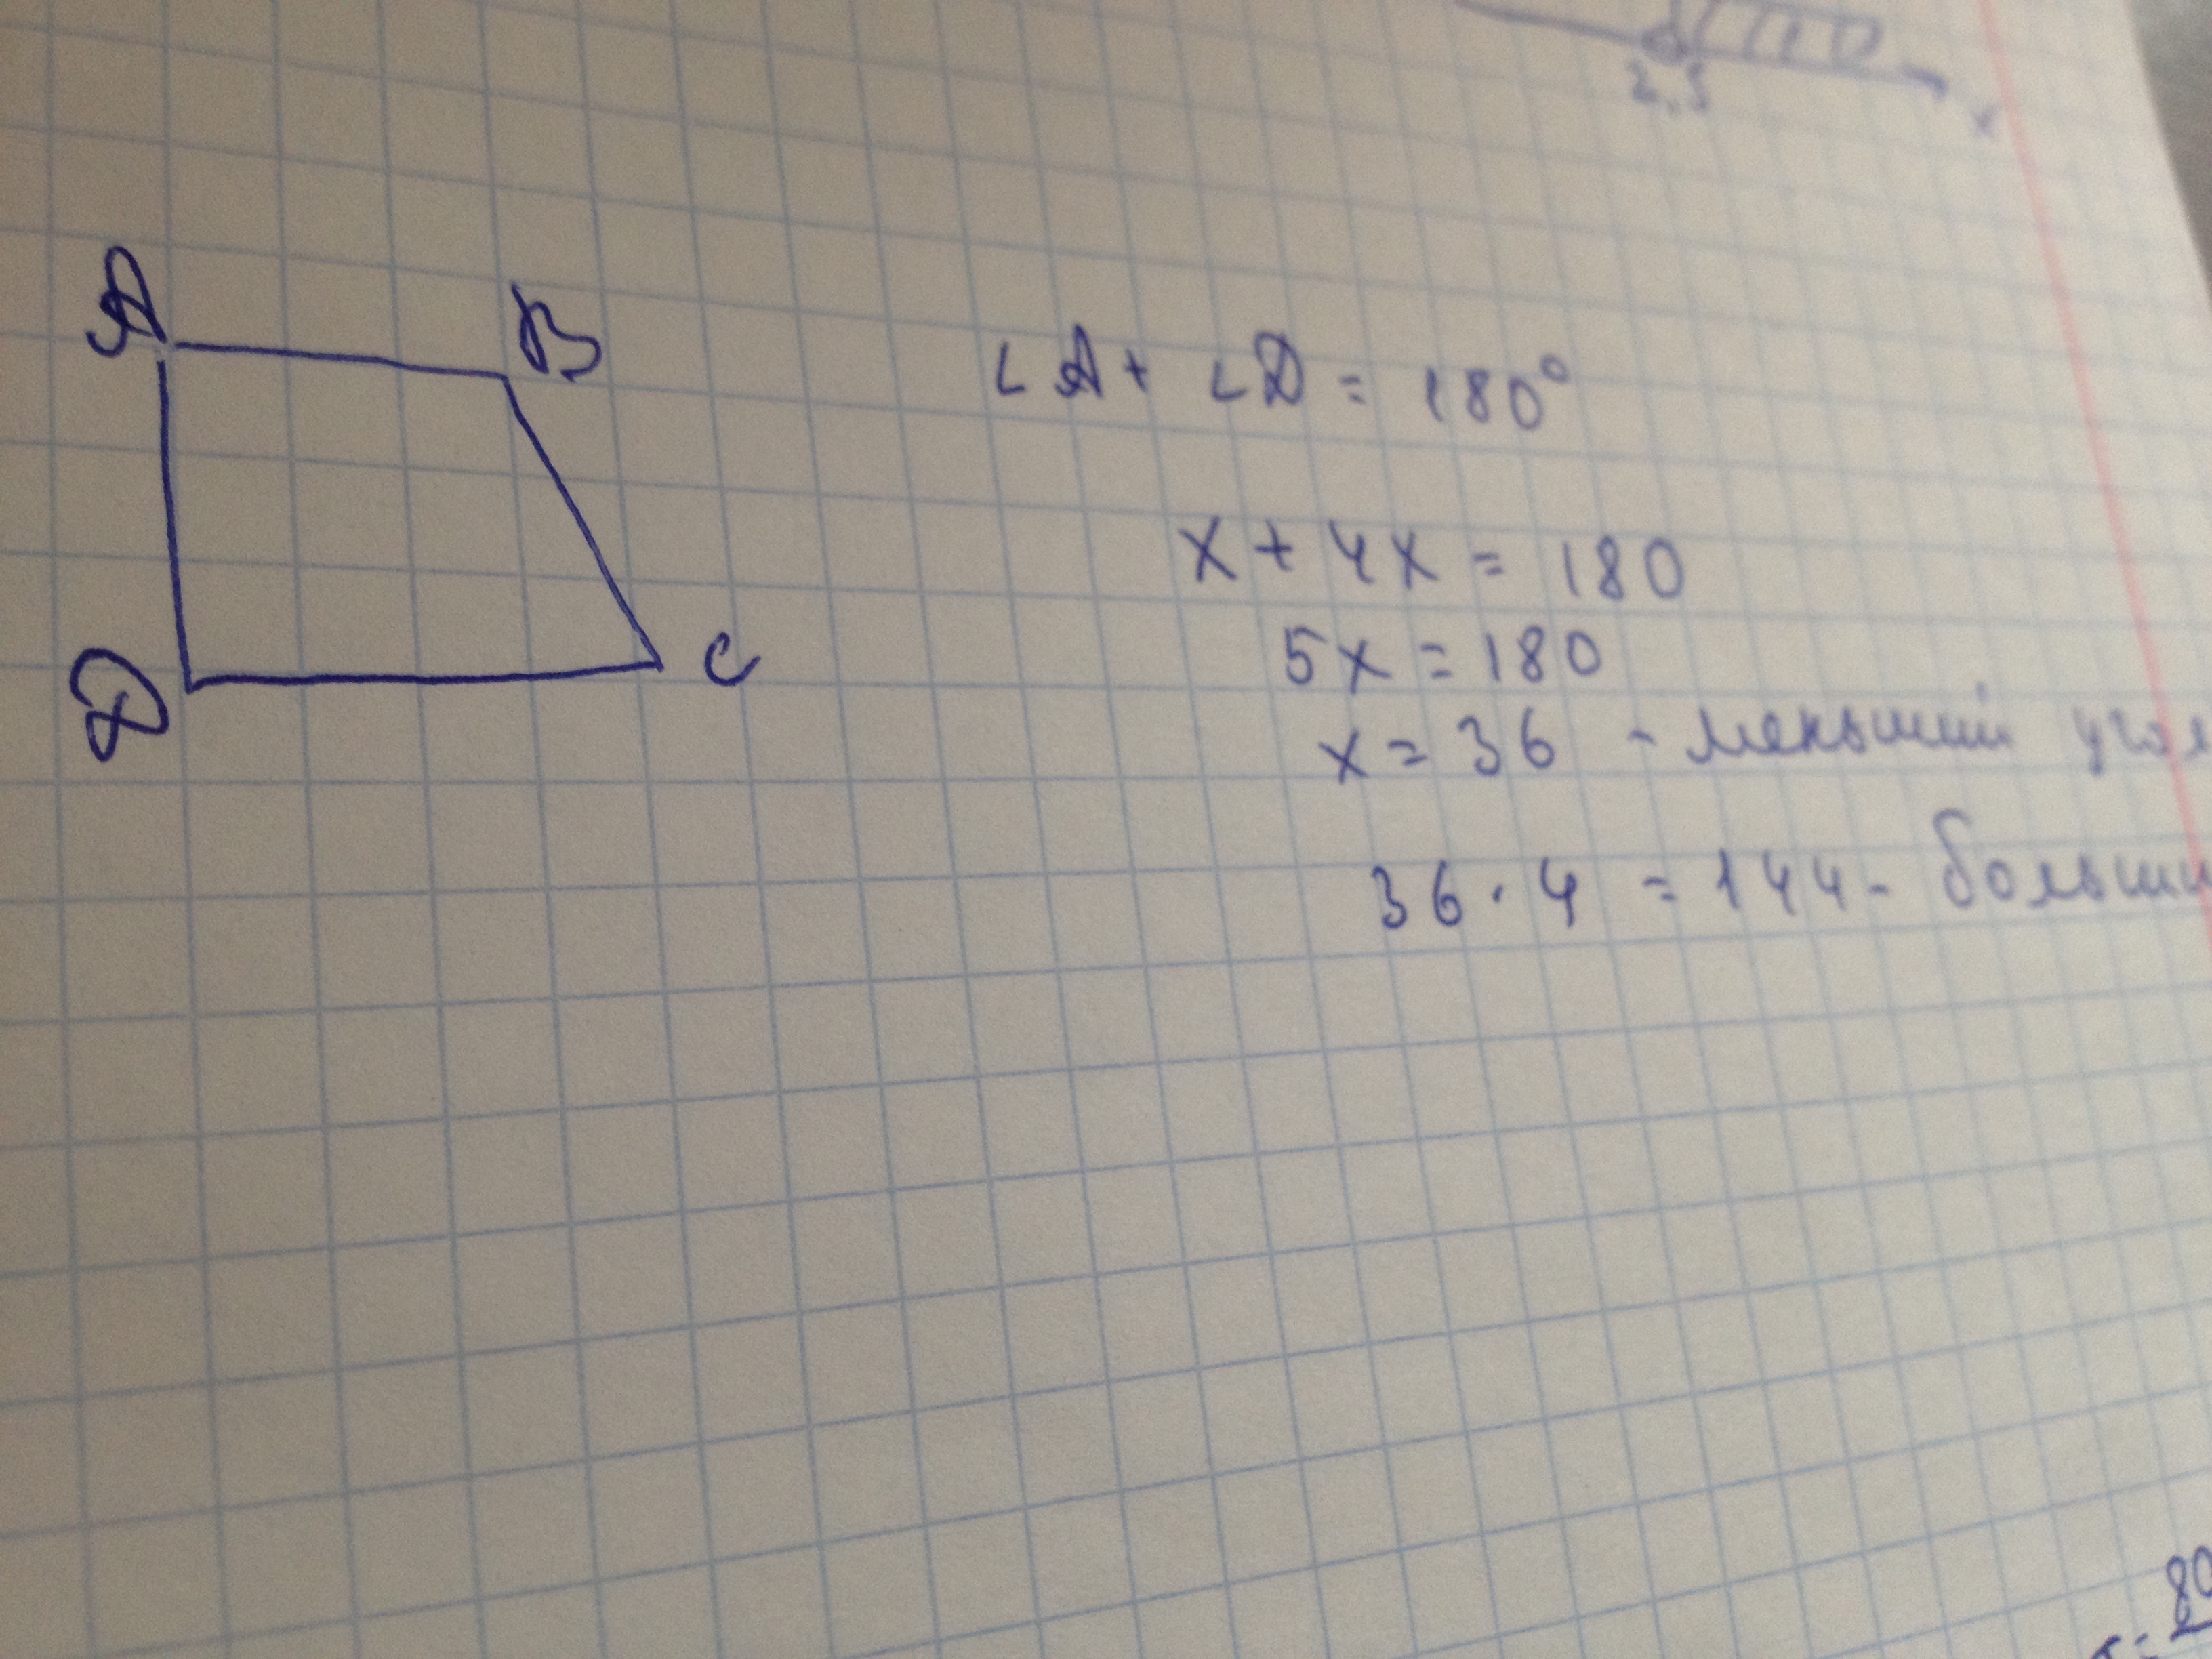 2,5
x
A
B
∠A + ∠D = 180°
x + 4x = 180
D
C
5x = 180
x = 36 - меньший угол
36 · 4 = 144 - больши
80